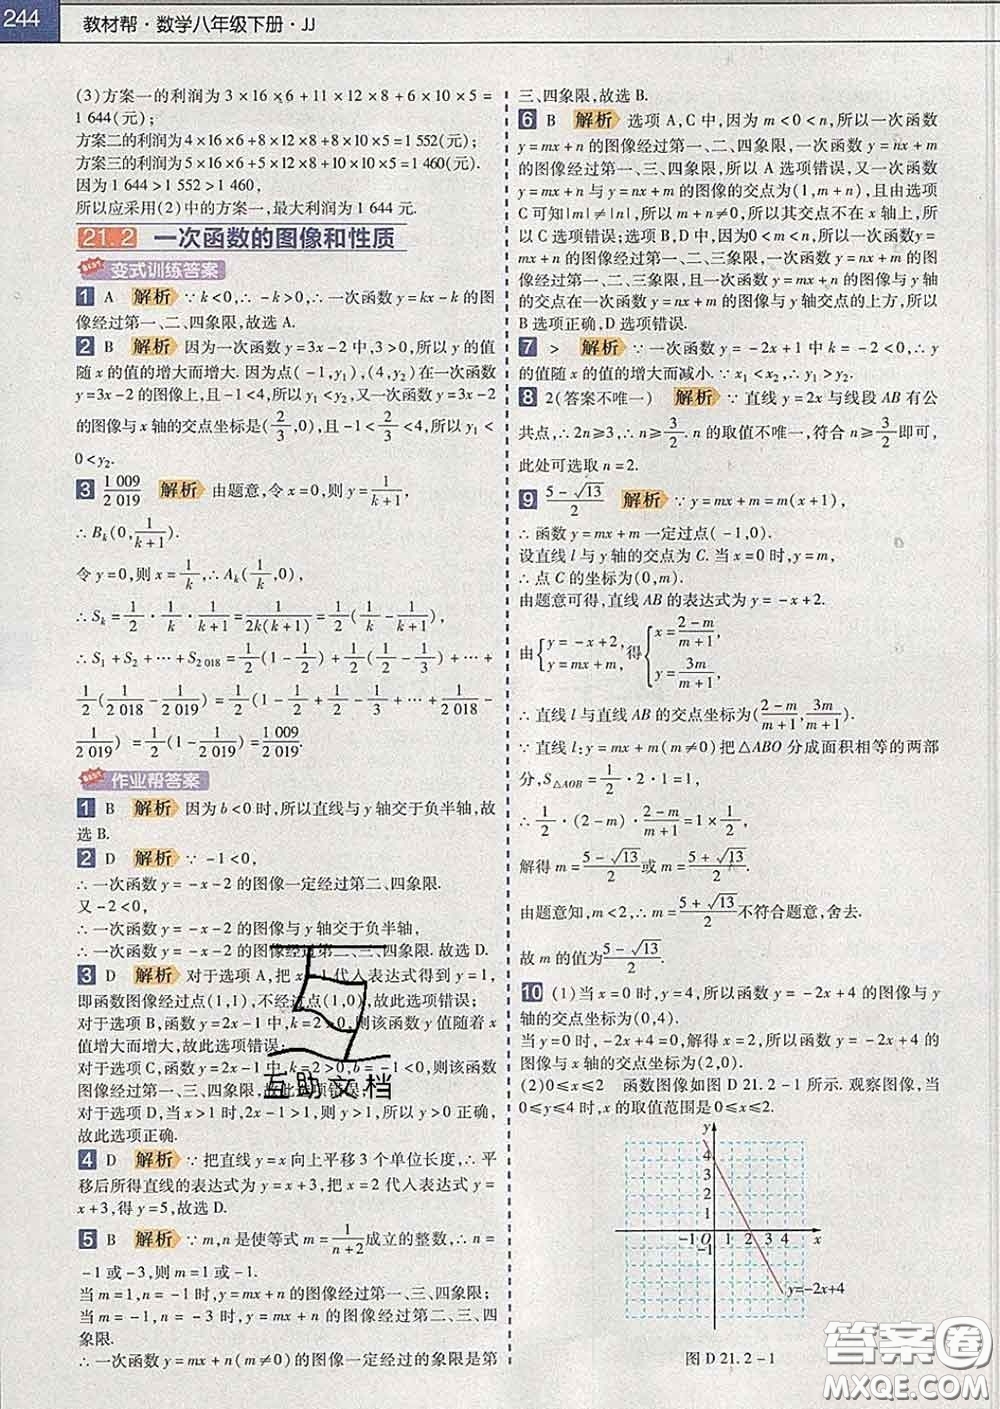 244
教材帮·数学八年级下册·JJ
(3)方案一的利润为 3×16×6+11×12×8+6×10×5=
1 644(元);
方案二的利润为4×16×6+8×12×8+8×10×5=1 552(元);
方案三的利润为5×16×6+5×12×8+10×10×5=1 460(元).
因为 1 644>1 552>1 460,
所以应采用(2)中的方案一,最大利润为 1 644 元.
21.2 一次函数的图像和性质
变式训练答案
1 A 解析 ∵k<0,∴-k>0,∴一次函数y=kx-k的图
像经过第一、二、四象限,故选 A.
2 B 解析 因为一次函数y=3x-2中,3>0,所以y的值
随x的值的增大而增大.因为点(-1,y₁),(4,y₂)在一次函数
y=3x-2的图像上,且-1<4,所以y₁<y₂,又一次函数y=3x-2
的图像与x轴的交点坐标是(2/3,0),且-1<2/3<4,所以y₁<
0<y₂.
3 1 009/2 019 解析 由题意,令x=0,则y=1/(k+1),
∴B_k(0,1/(k+1)).
令y=0,则x=1/k,∴A_k(1/k,0),
∴S_k=1/2·1/k·1/(k+1)=1/(2k(k+1))=1/2(1/k-1/(k+1)),
∴S₁+S₂+…+S₂₀₁₈=1/2(1-1/2)+1/2(1/2-1/3)+…+
1/2(1/2 018-1/2 019)=1/2(1-1/2+1/2-1/3+…+1/2 018-
1/2 019)=1/2(1-1/2 019)=1 009/2 019.
作业帮答案
1 B 解析 因为b<0时,所以直线与y轴交于负半轴,故
选 B.
2 D 解析 ∵-1<0,
∴一次函数y=-x-2的图像一定经过第二、四象限.
又-2<0,
∴一次函数y=-x-2的图像与y轴交于负半轴,
∴一次函数y=-x-2的图像经过第二、三、四象限.故选 D.
3 D 解析 对于选项 A,把x=1代入表达式得到y=1,
即函数图像经过点(1,1),不经过点(1,0),故此选项错误;
对于选项 B,函数y=2x-1中,k=2>0,则该函数y值随着x
值增大而增大,故此选项错误;
对于选项 C,函数y=2x-1中,k=2>0,b=-1<0,则该函数
图像经过第一、三、四象限,故此选项错误;
对于选项 D,当x>1时,2x-1>1,则y>1,所以y>0正确,
故此选项正确.
4 D 解析 ∵把直线y=x向上平移3个单位长度,∴平
移后所得直线的表达式为y=x+3,把x=2代入表达式y=
x+3,得y=5,故选 D.
5 B 解析 ∵m,n是使等式m=1/(n+2)成立的整数,∴n=
-1或-3,则m=1或-1.
当m=1,n=-1时,y=mx+n的图像经过第一、三、四象限;
当m=-1,n=-3时,y=mx+n的图像经过第二、三、四
象限.
∴一次函数y=mx+n(m≠0)的图像一定经过的象限是第
三、四象限,故选 B.
6 B 解析 选项 A,C 中,因为m<0<n,所以一次函数
y=mx+n的图像经过第一、二、四象限,一次函数y=nx+m
的图像经过第一、三、四象限,所以 A 选项错误;一次函数
y=mx+n与y=nx+m的图像的交点为(1,m+n),且由选项
C 可知|m|≠|n|,所以m+n≠0,所以其交点不在x轴上,所
以 C 选项错误;选项 B,D 中,因为0<m<n,所以一次函数y=
mx+n的图像经过第一、二、三象限,一次函数y=nx+m的图
像经过第一、二、三象限,且一次函数y=mx+n的图像与y轴
的交点在一次函数y=nx+m的图像与y轴交点的上方,所以
B 选项正确,D 选项错误.
7 > 解析 ∵一次函数y=-2x+1中k=-2<0,∴y
的值随x的值的增大而减小.∵x₁<x₂,∴y₁>y₂.
8 2(答案不唯一) 解析 ∵直线y=2x与线段AB有公
共点,∴2n≥3,∴n≥3/2.n的取值不唯一,符合n≥3/2即可,
此处可选取n=2.
9 (5-√13)/2 解析 ∵y=mx+m=m(x+1),
∴函数y=mx+m一定过点(-1,0).
设直线l与y轴的交点为C.当x=0时,y=m,
∴点C的坐标为(0,m).
由题意可得,直线AB的表达式为y=-x+2.
由{y=-x+2, y=mx+m,得{x=(2-m)/(m+1), y=3m/(m+1).
∴直线l与直线AB的交点坐标为((2-m)/(m+1),3m/(m+1)).
∵直线l:y=mx+m(m≠0)把△ABO分成面积相等的两部
分,S△AOB=1/2·2·1=1,
∴1/2·(2-m)·(2-m)/(m+1)=1×1/2,
解得m=(5-√13)/2或m=(5+√13)/2.
由题意知,m<2,∴m=(5+√13)/2不符合题意,舍去.
故m的值为(5-√13)/2.
10 (1)当x=0时,y=4,所以函数y=-2x+4的图像与y
轴的交点坐标为(0,4).
当y=0时,-2x+4=0,解得x=2,所以函数y=-2x+4的
图像与x轴的交点坐标为(2,0).
(2)0≤x≤2 函数图像如图 D 21.2-1 所示.观察图像,当
0≤y≤4时,x的取值范围是0≤x≤2.
y
4
3
2
1
-1 O 1 2 3 4 x
-1
y=-2x+4
图 D 21.2-1
互助文档
答案圈
MXQE.COM